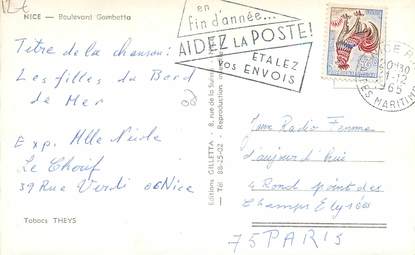 12€
NICE — Boulevard Gambetta
Titre de la chanson:
Les filles du Bord
de Mer
Exp. Mlle Nicole
Le Chouf
39 Rue Verdi 06 Nice
Tabacs THEYS
Editions GILLETTA - 8, rue de la
88-25-02 - Reproduction
en
fin d'année...
AIDEZ LA POSTE!
ETALEZ
vos ENVOIS
20H30
21-12
1965
ES MARITIM
Jeux Radio Femme
d'aujourd'hui
4 Rond point des
Champs Elysées
75 PARIS